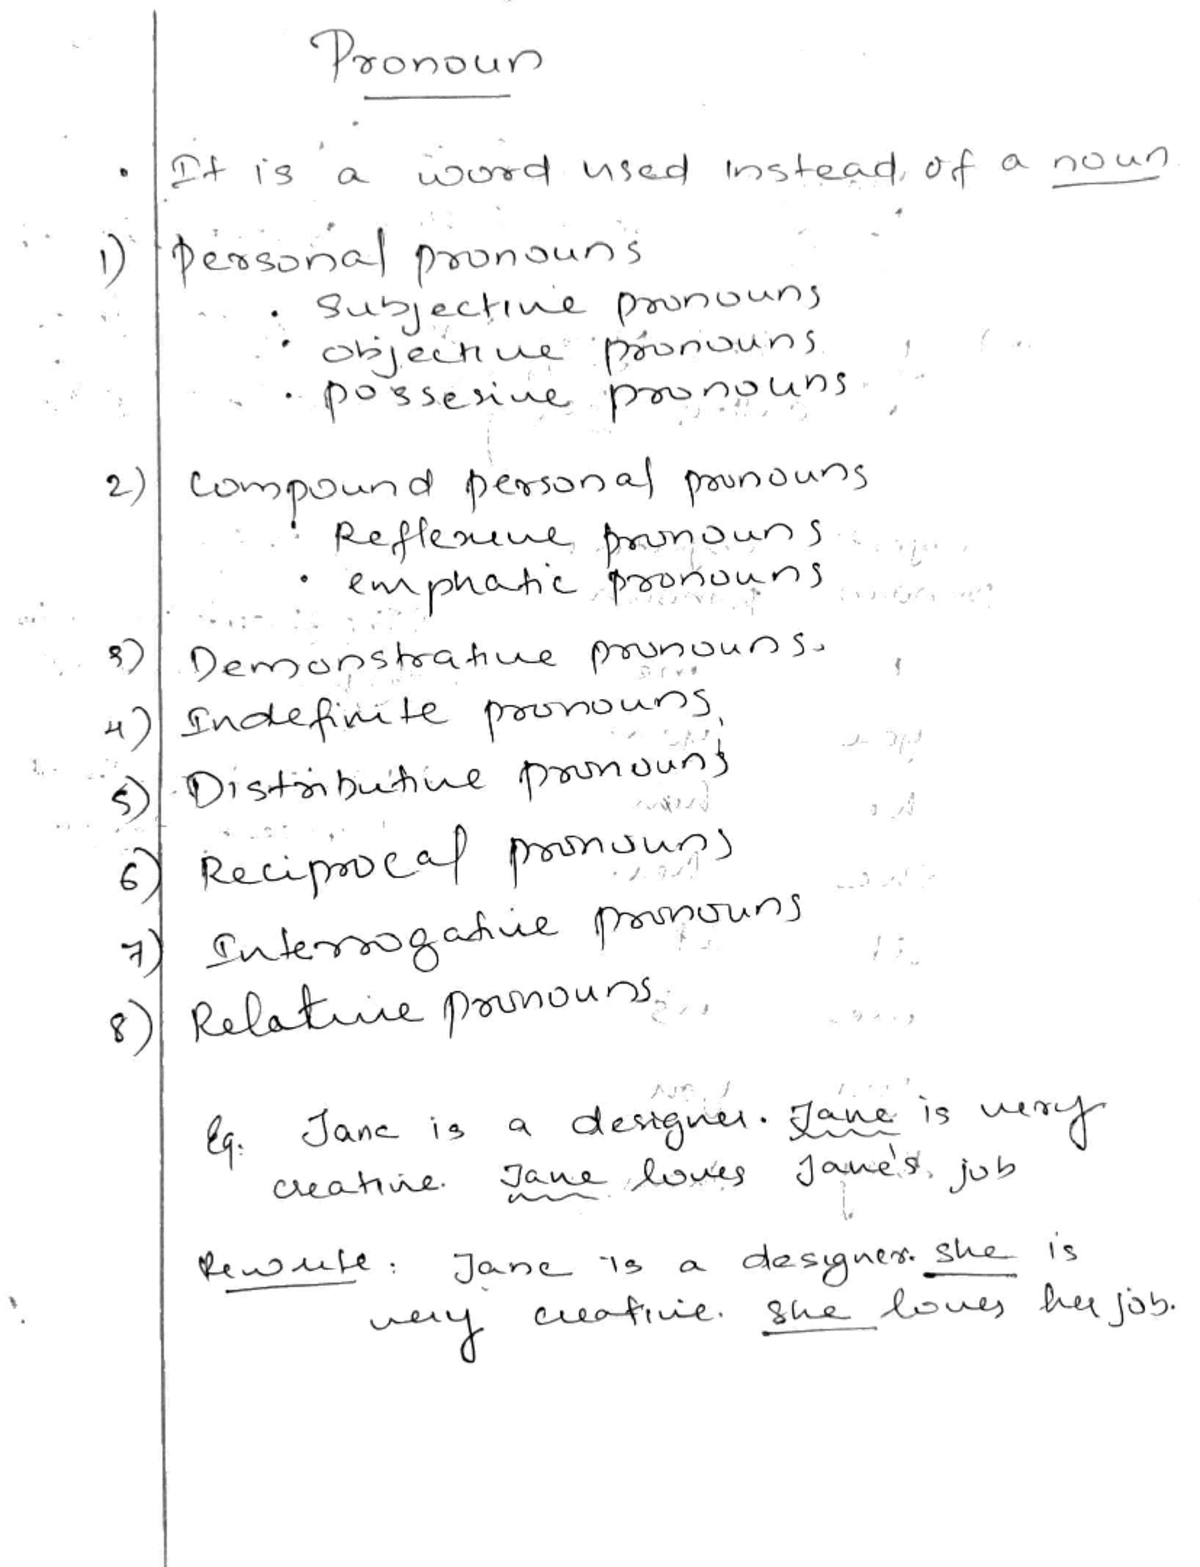 Pronoun
• It is a word used instead of a noun
1) Personal pronouns
• Subjective pronouns
• objective pronouns
• possesive pronouns
2) Compound personal pronouns
• Reflexive pronouns
• emphatic pronouns
3) Demonstrative pronouns.
4) Indefinite pronouns
5) Distributive pronouns
6) Reciprocal pronouns
7) Interrogative pronouns
8) Relative pronouns
Eg. Jane is a designer. Jane is very
creative. Jane loves Jane's job
Rewrite: Jane is a designer. She is
very creative. She loves her job.